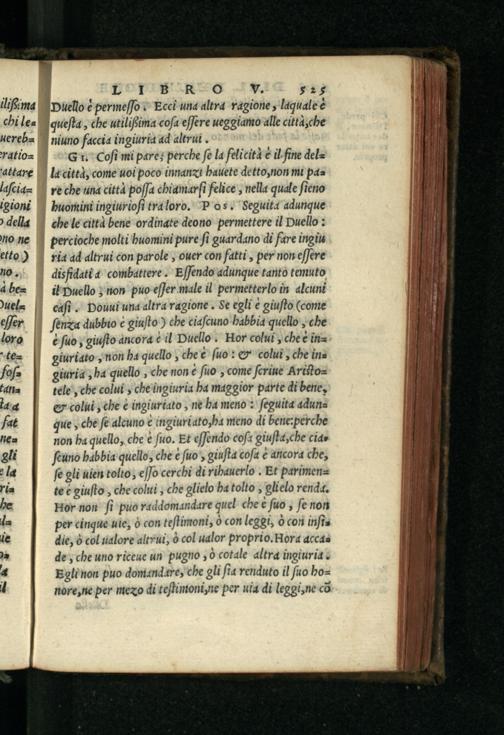 LIBRO V. 525
Duello è permesso. Ecci una altra ragione, laquale è
questa, che utilißima cosa essere ueggiamo alle città, che
niuno faccia ingiuria ad altrui.
GI. Cosi mi pare; perche se la felicità è il fine del=
la città, come uoi poco innanzi hauete detto, non mi pa=
re che una città possa chiamarsi felice, nella quale sieno
huomini ingiuriosi tra loro. POS. Seguita adunque
che le città bene ordinate deono permettere il Duello:
percioche molti huomini pure si guardano di fare ingiu
ria ad altrui con parole, ouer con fatti, per non essere
disfidati à combattere. Essendo adunque tanto temuto
il Duello, non può esser male il permetterlo in alcuni
casi. Douui una altra ragione. Se egli è giusto (come
senza dubbio è giusto) che ciascuno habbia quello, che
è suo, giusto ancora è il Duello. Hor colui, che è in=
giuriato, non ha quello, che è suo: & colui, che in=
giuria, ha quello, che non è suo, come scriue Aristo=
tele, che colui, che ingiuria ha maggior parte di bene,
& colui, che è ingiuriato, ne ha meno: seguita adun=
que, che se alcuno è ingiuriato, ha meno di bene: perche
non ha quello, che è suo. Et essendo cosa giusta, che cia=
scuno habbia quello, che è suo, giusta cosa è ancora che,
se gli uien tolto, esso cerchi di rihauerlo. Et parimen=
te è giusto, che colui, che glielo ha tolto, glielo renda.
Hor non si puo raddomandare quel che è suo, se non
per cinque uie, ò con testimoni, ò con leggi, ò con insi=
die, ò col ualore altrui, ò col ualor proprio. Hora acca=
de, che uno riceue un pugno, ò cotale altra ingiuria.
Egli non puo domandare, che gli sia renduto il suo ho=
nore, ne per mezo di testimoni, ne per uia di leggi, ne cõ